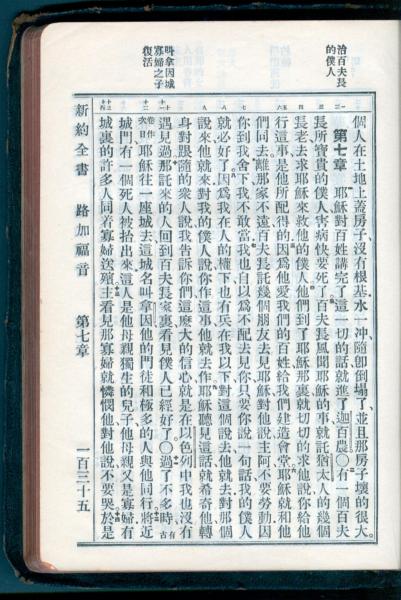 治百夫長
的僕人
叫拿因城
寡婦之子
復活
個人在土地上蓋房子沒有根基水一冲隨卽倒塌了並且那房子壞的很大。
第七章 耶穌對百姓講完了這一切的話就進了迦百農〇有一個百夫
長所寶貴的僕人害病快要死了百夫長風聞耶穌的事就託猶太人的幾個
長老去求耶穌來救他的僕人他們到了耶穌那裏就切切的求他說你給他
行這事是他所配得的因爲他愛我們的百姓給我們建造會堂耶穌就和他
們同去離那家不遠百夫長託幾個朋友去見耶穌對他說主阿不要勞動因
你到我舍下我不敢當我也自以爲不配去見你只要你說一句話我的僕人
就必好了因爲我在人的權下也有兵在我以下對這個說去他就去對那個
說來他就來對我的僕人說你作這事他就去作耶穌聽見這話就希奇他轉
身對跟隨的衆人說我告訴你們這麽大的信心就是在以色列中我也沒有
遇見過那託來的人回到百夫長家裏看見僕人已經好了〇過了不多時有古
卷作次日耶穌往一座城去這城名叫拿因他的門徒和極多的人與他同行將近
城門有一個死人被抬出來這人是他母親獨生的兒子他母親又是寡婦有
城裏的許多人同着寡婦送殯主看見那寡婦就憐憫他對他說不要哭於是
新約全書 路加福音 第七章 一百三十五